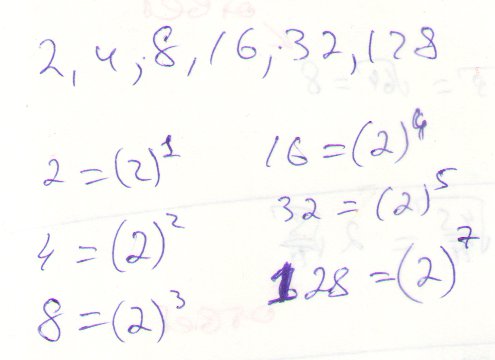 2, 4, 8, 16, 32, 128
2 = (2)^1
4 = (2)^2
8 = (2)^3
16 = (2)^4
32 = (2)^5
128 = (2)^7